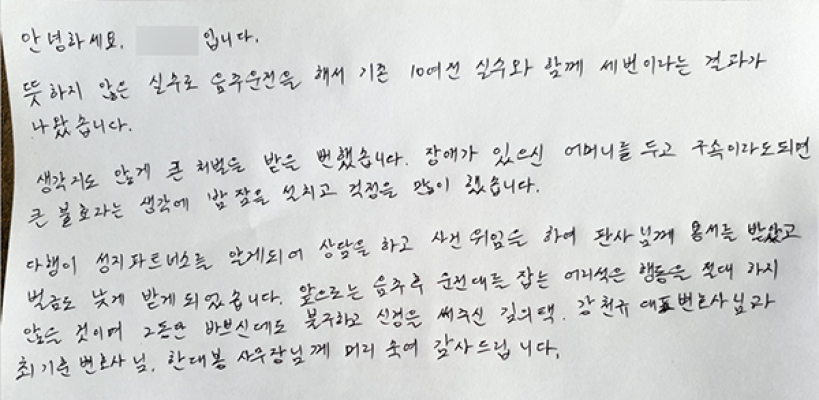 안녕하세요. 입니다.
뜻하지 않은 실수로 음주운전을 해서 기존 10여년 실수와 함께 세번이라는 결과가
나왔습니다.
생각지도 않게 큰 처벌을 받을 뻔했습니다. 장애가 있으신 어머니를 두고 구속이라도되면
큰 불효라는 생각에 밤잠을 설치고 걱정을 많이 했습니다.
다행이 성지파트너스를 알게되어 상담을 하고 사건위임을 하여 판사님께 용서를 받았고
벌금도 낮게 받게되었습니다. 앞으로는 음주후 운전대를 잡는 어리석은 행동을 절대 하지
않을 것이며 그동안 바쁘신데도 불구하고 신경을 써주신 김의택. 강천규 대표변호사님과
최기훈변호사님, 한대봉 사무장님께 머리 숙여 감사드립니다.